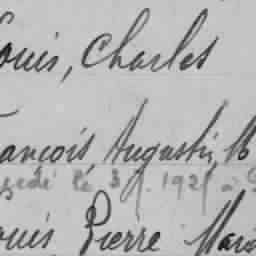 ouis, Charles
rançois, Augustin, M
cédé le 3 1921 à
ouis Pierre Mari